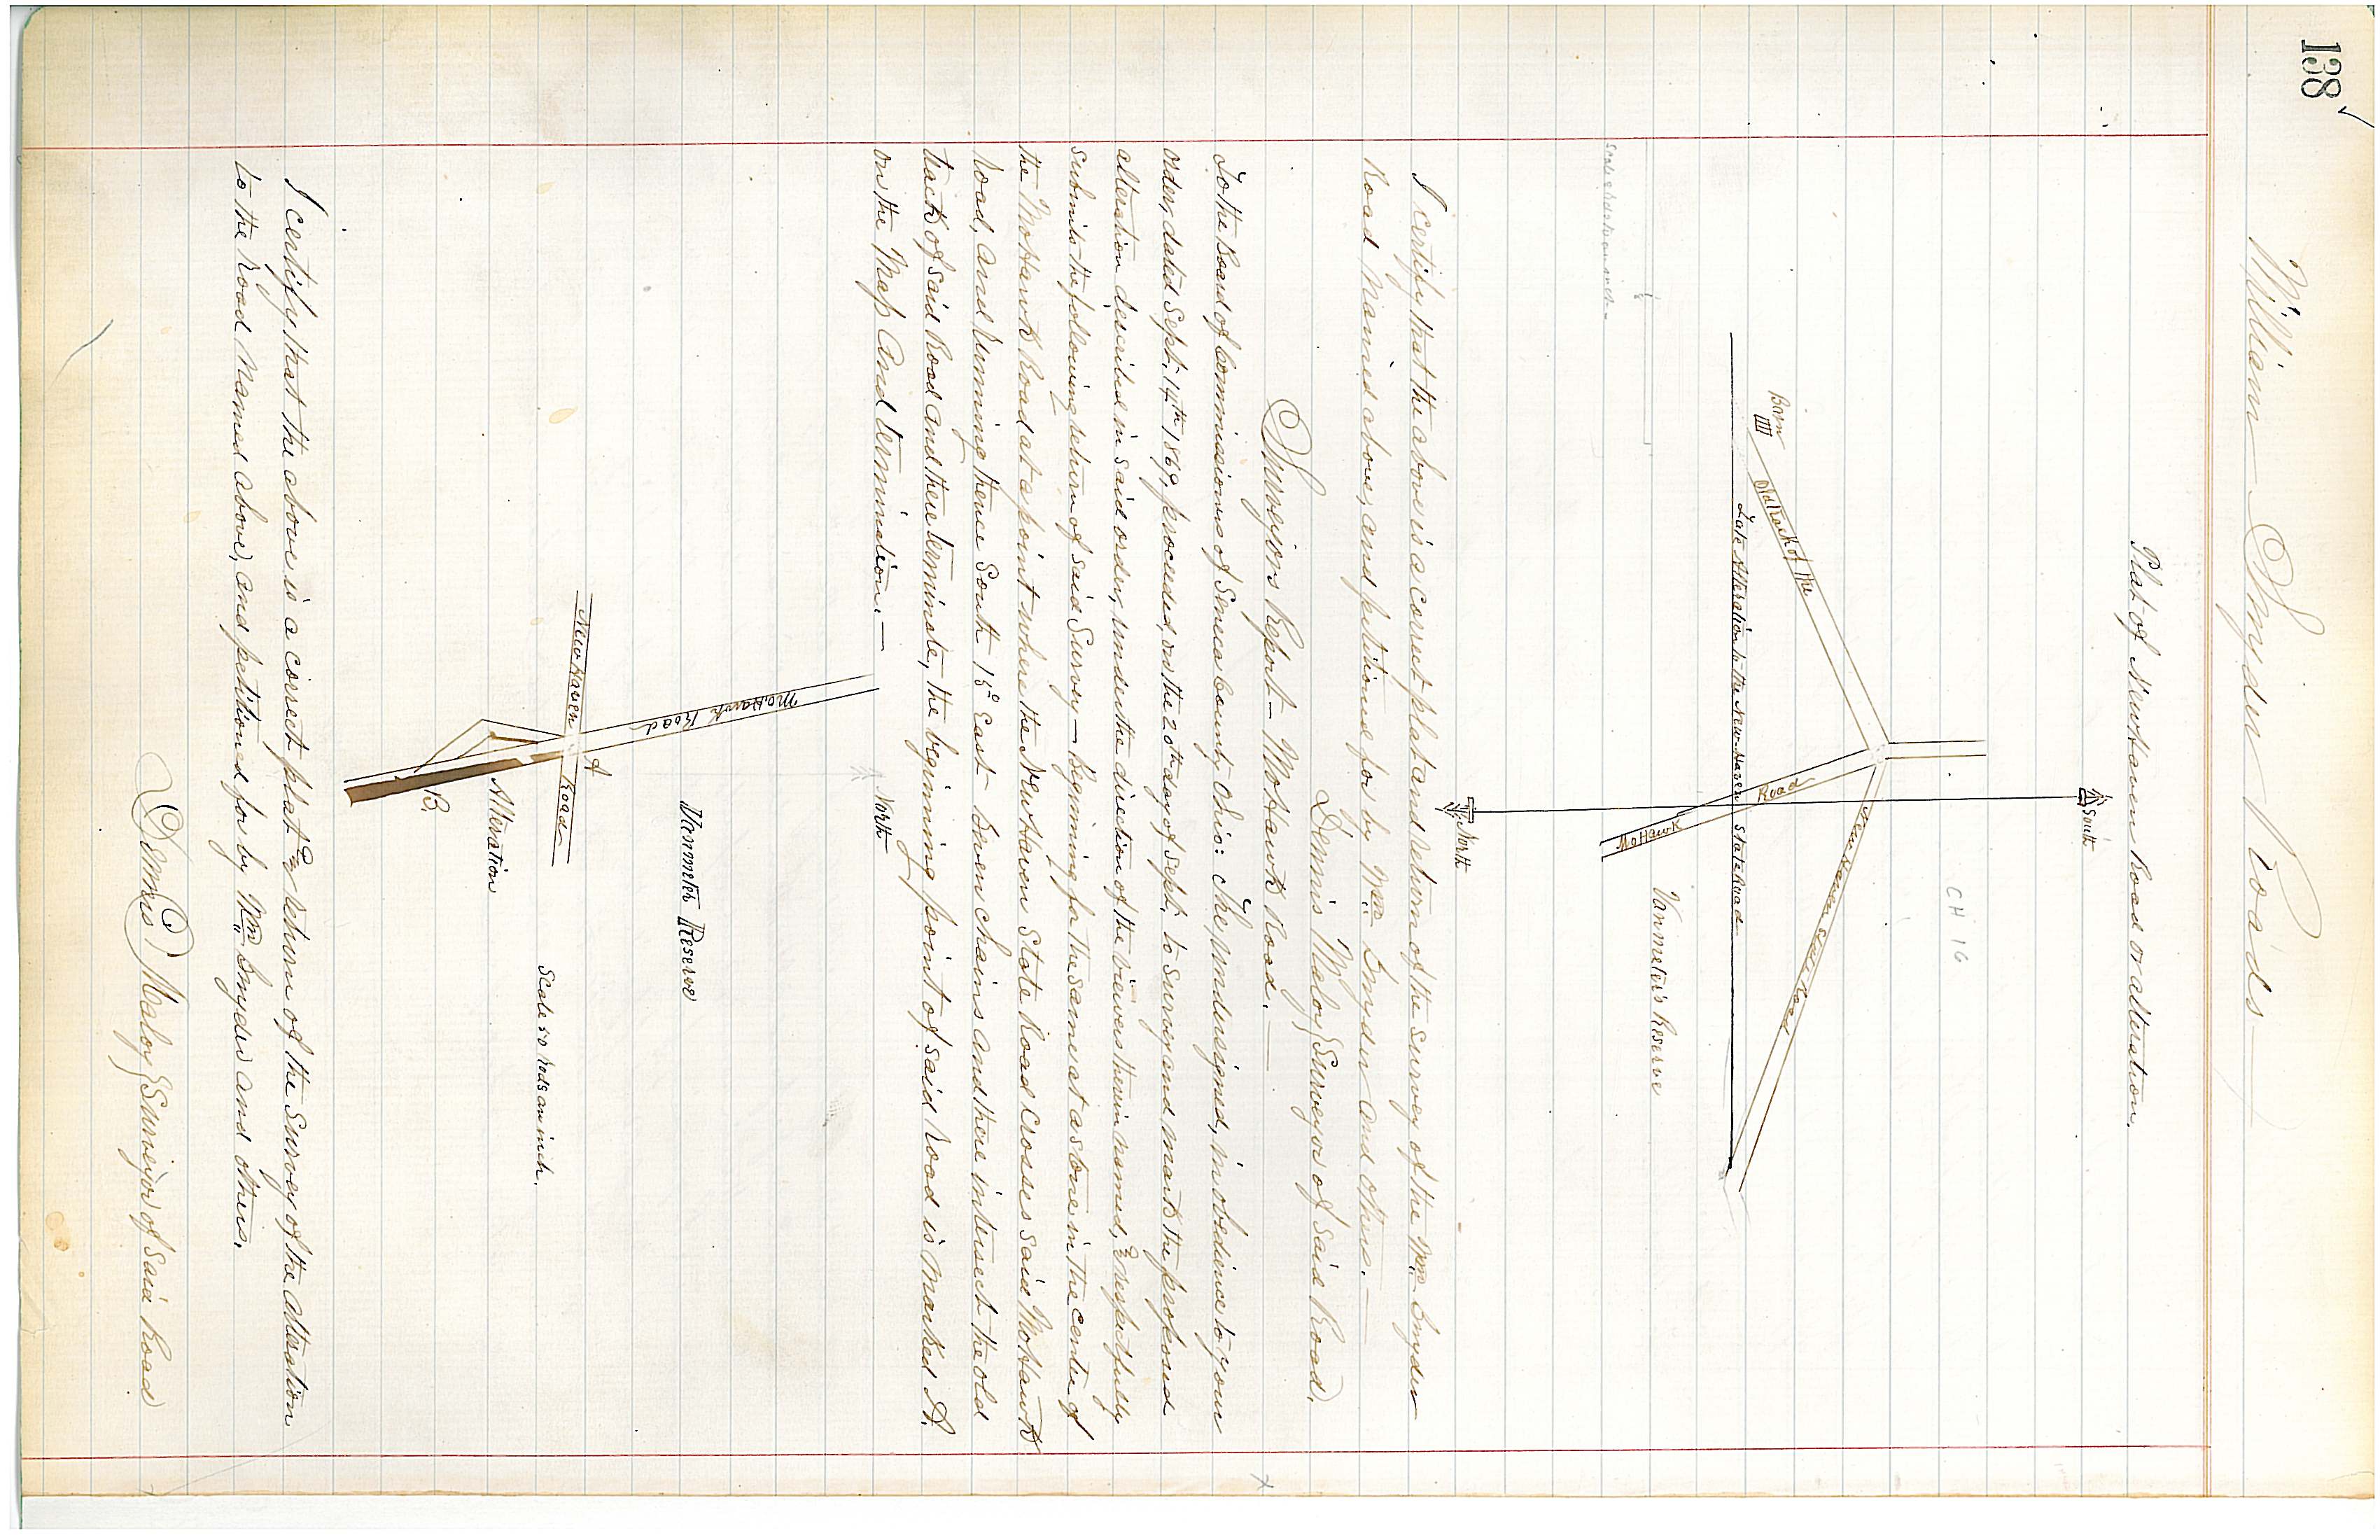 138
William Snyder Roads
Plat of New Haven Road or alteration.
South
CH 16
New Haven State Road
Old track of the
Barn
Road
MoHawk
Late Alteration in the New Haven State Road
Vanmeter's Reserve
North
I certify that the above is a correct plat and return of the survey of the Wm Snyder
Road named above, and petitioned for by Wm Snyder and others.—
Dennis Maloy Surveyor of said Road.
Surveyors Report — MoHawk Road.
To the Board of Commissioners of Seneca County, Ohio: The undersigned, in obedience to your
order, dated Sept. 14th 1869, proceeded, on the 20th day of Sept. to survey and mark the proposed
alteration described in said order, under the direction of the viewers therein named, & respectfully
submits the following return of said Survey — Beginning for the same at a stone in the center of
the MoHawk Road at a point where the New Haven State Road crosses said MoHawk
Road, and running thence South 15° East seven chains and there intersect the old
track of said Road and there terminate, the beginning point of said Road is marked A.
on the Map and termination.—
North
MoHawk Road
Vanmeter Reserve
New Haven
A
Road
Scale 50 rods an inch.
Alteration
B.
I certify that the above is a correct plat & return of the survey of the alteration
to the Road named above, and petitioned for by Wm Snyder and others.
Dennis Maloy Surveyor of said Road